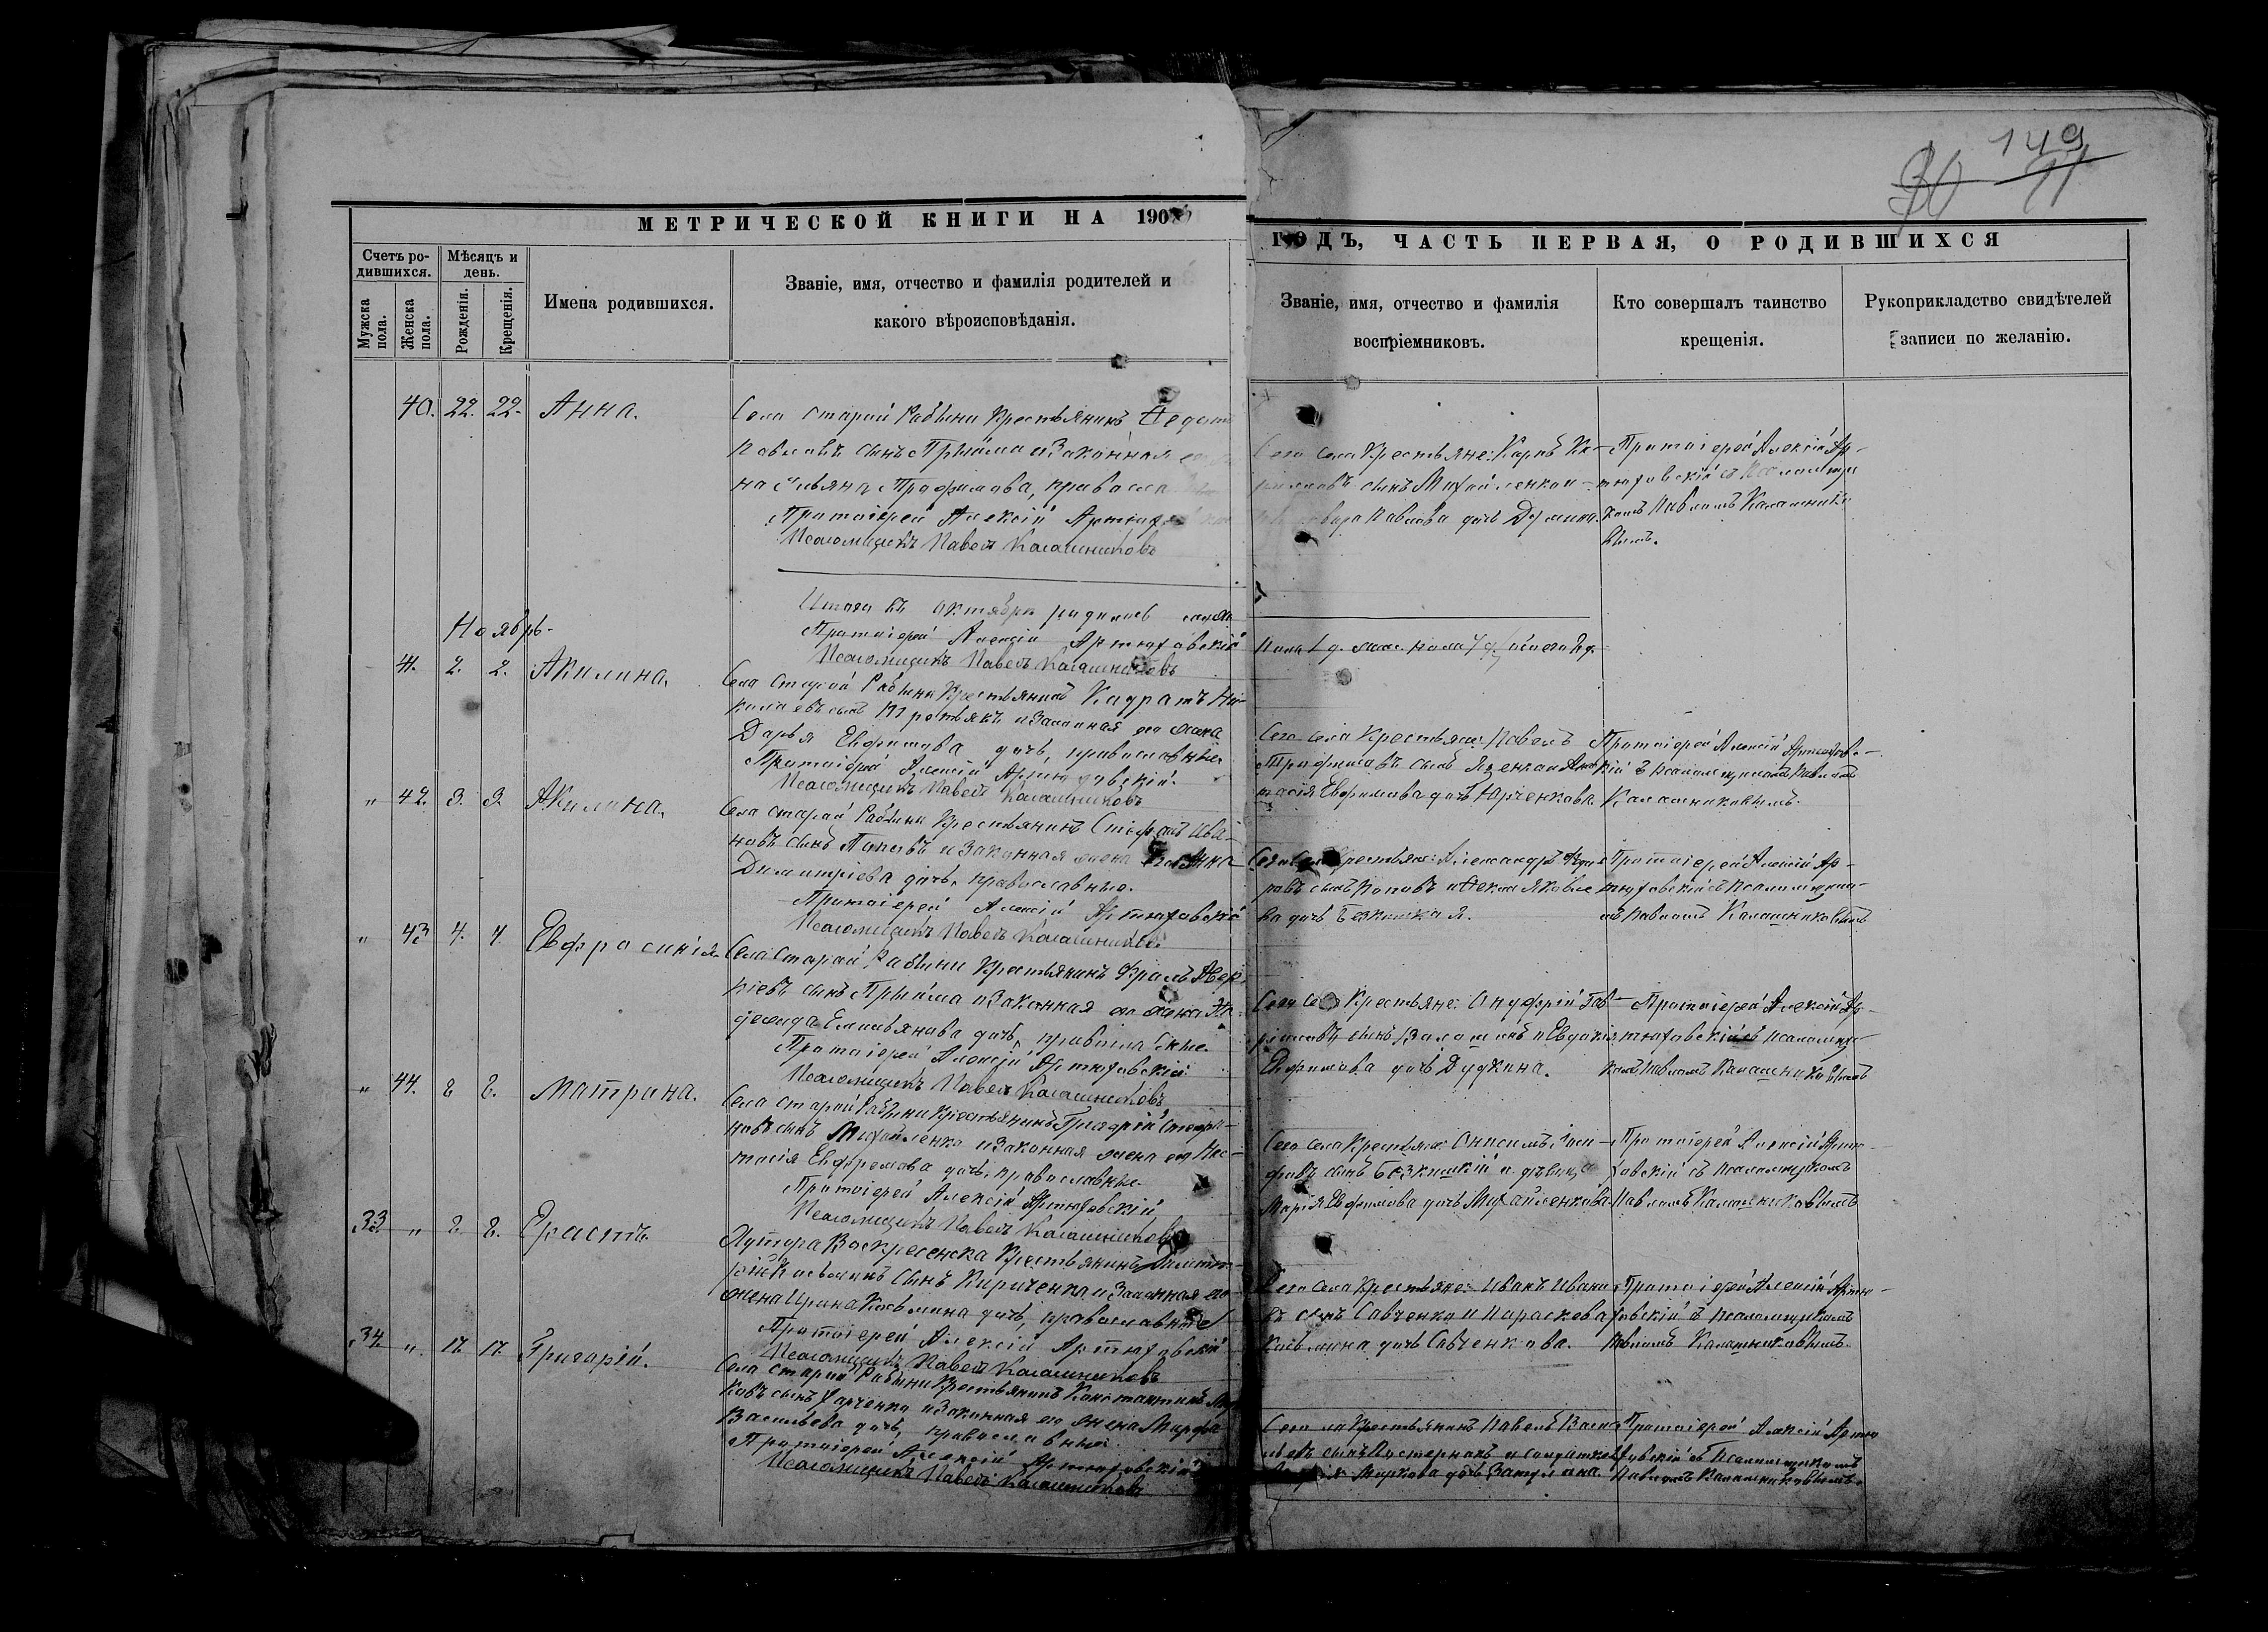 149
30 91
МЕТРИЧЕСКОЙ КНИГИ НА 190
ГОДЪ, ЧАСТЬ ПЕРВАЯ, О РОДИВШИХСЯ
Счетъ родившихся.
Мужска пола.
Женска пола.
Мѣсяцъ и день.
Рожденія.
Крещенія.
Имена родившихся.
Званіе, имя, отчество и фамилія родителей и
какого вѣроисповѣданія.
Званіе, имя, отчество и фамилія
воспріемниковъ.
Кто совершалъ таинство
крещенія.
Рукоприкладство свидѣтелей
записи по желанію.
40. 22. 22. Анна.
Села Старой Рябины Крестьянинъ Федотъ
Павловъ сынъ Прийма и Законная
на Ульяна Трофимова,
Протоіерей Алексій
Псаломщикъ Павелъ Калашниковъ
Сего села Крестьяне: Карпъ
сынъ Михайленко и
Павлова дочь
Протоіерей Алексій Ар-
тюховскій съ Псаломщи
комъ Павломъ Калашнико
вымъ.
Итого въ октябрѣ родилось
Протоіерей Алексій Артюховскій
Псаломщикъ Павелъ Калашниковъ
Ноябрь.
41. 2. 2. Акилина.
Села Старой Рябины Крестьянинъ Кодратъ Ни-
колаевъ сынъ Третьякъ и Законная его жена
Дарья дочь, православные
Протоіерей Алексій Артюховскій.
Псаломщикъ Павелъ Калашниковъ
Сего села Крестьяне: Павелъ
Трофимовъ сынъ Яценко и Анас
тасія Ефимова дочь Юрченкова.
Протоіерей Алексій Артюховс-
кій съ Псаломщикомъ Павломъ
Калашниковымъ.
" 42. 3. 3. Акилина.
Села Старой Рябины Крестьянинъ Стефанъ Ива-
новъ сынъ Поповъ и Законная жена его Анна
Димитріева дочь, православные.
Протоіерей Алексій Артюховскій
Псаломщикъ Павелъ Калашниковъ.
Сего села Крестьяне: Александръ
сынъ Поповъ и Фекла Яковле
ва дочь Безкишкая.
Протоіерей Алексій Ар-
тюховскій съ Псаломщико-
мъ Павломъ Калашниковымъ
" 43. 4. 4. Евфросинія.
Села Старой Рябины Крестьянинъ
кіевъ сынъ Прийма и Законная его жена На
дежда Емельянова дочь, православные.
Протоіерей Алексій Артюховскій.
Псаломщикъ Павелъ Калашниковъ
Сего села Крестьяне: Онуфрій Гав-
риловъ сынъ и Евдокія
Ефимова дочь Дудкина.
Протоіерей Алексій Ар-
тюховскій съ псаломщи-
комъ Павломъ Калашниковымъ
" 44. 8 8. Матрона.
Села Старой Рябины Крестьянинъ Григорій Стефа-
новъ сынъ Михайленко и Законная жена его Нас-
тасія Ефремова дочь, православные.
Протоіерей Алексій Артюховскій
Псаломщикъ Павелъ Калашниковъ
Сего села Крестьяне: Онисимъ
сынъ Безкишкій и дѣвица
Марія Ефимова дочь Михайленкова.
Протоіерей Алексій Артю-
ховскій съ псаломщикомъ
Павломъ Калашниковымъ
33. " 8. 8. Ерастъ.
Хутора Воскресенска Крестьянинъ
Косьминъ сынъ Кириченко и Законная его
жена Ирина Косьмина дочь, православные
Протоіерей Алексій Артюховскій
Псаломщикъ Павелъ Калашниковъ
Сего села Крестьяне: Иванъ Ивано
въ сынъ Савченко и Параскева
Косьмина дочь Савченкова.
Протоіерей Алексій Артю-
ховскій съ псаломщикомъ
Павломъ Калашниковымъ.
34 " 17. 17. Григорій.
Села Старой Рябины Крестьянинъ Константинъ
ковъ сынъ Харченко и Законная его жена Марфа
Васильева дочь, православные.
Протоіерей Алексій Артюховскій
Псаломщикъ Павелъ Калашниковъ
Сего села Крестьянинъ Павелъ Васи
льевъ сынъ Пастернакъ и солдатка
Маркова дочь
Протоіерей Алексій Артю
ховскій съ Псаломщикомъ
Павломъ Калашниковымъ.